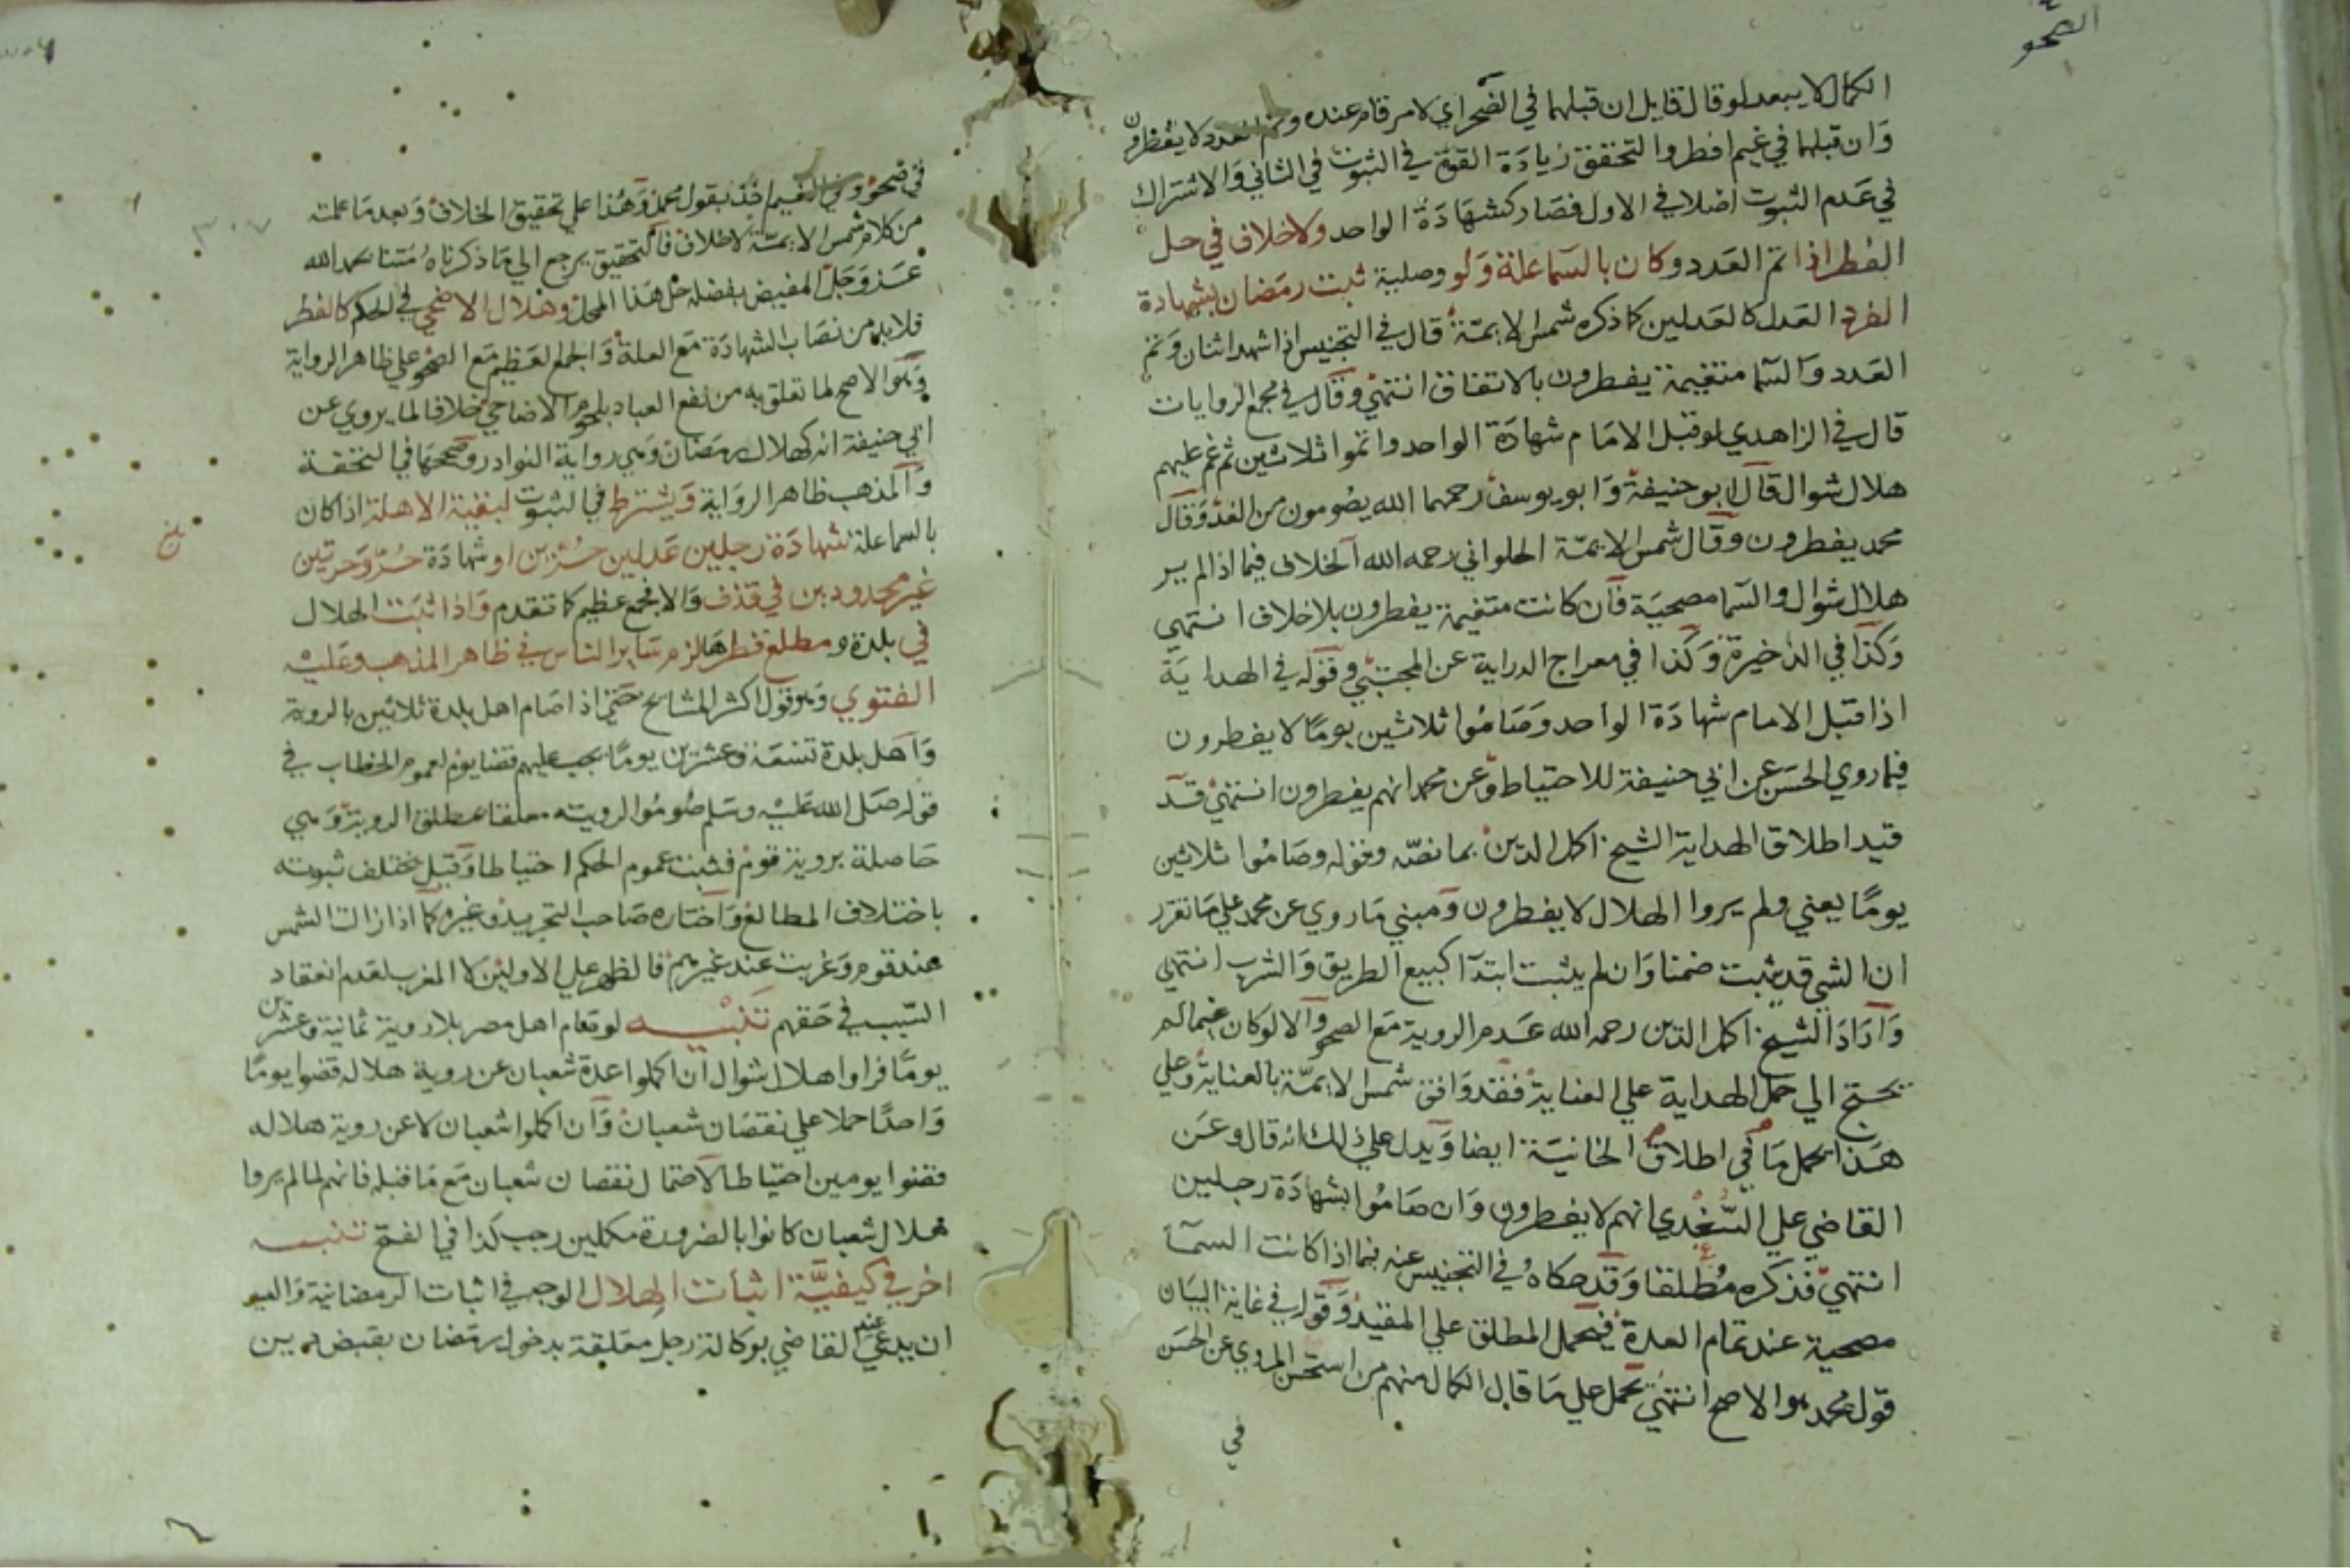 الصحو
الكمال لا يبعد لو قال قايل ان قبلهما في الصحو اي لامر قام عنده وتم العدد لا يفطرون
وان قبلهما في غيم افطروا لتحقق زيادة القوة في الثبوت في الثاني والاشتراك
في عدم الثبوت اصلا في الاول فصار كشهادة الواحد ولا خلاف في حل
الفطر اذا تم العدد وكان بالسما علة ولو وصلية ثبت رمضان بشهادة
الفرد العدل كالعدلين كما ذكره شمس الايمة قال في التجنيس اذا شهد اثنان وتم
العدد والسما متغيمة يفطرون بالاتفاق انتهي وقال في مجمع الروايات
قال في الزاهدي لو قبل الامام شهادة الواحد واتموا ثلاثين ثم غم عليهم
هلال شوال قال ابو حنيفة وابو يوسف رحمهما الله يصومون من الغد وقال
محمد يفطرون وقال شمس الايمة الحلواني رحمه الله الخلاف فيما اذا لم ير
هلال شوال والسما مصحية فان كانت متغيمة يفطرون بلا خلاف انتهي
وكذا في الذخيرة وكذا في معراج الدراية عن المجتبي وقوله في الهداية
اذا قبل الامام شهادة الواحد وصاموا ثلاثين يوما لا يفطرون
فيما روي الحسن عن ابي حنيفة للاحتياط وعن محمد انهم يفطرون انتهي قد
قيد اطلاق الهداية الشيخ اكمل الدين بما نصه وقوله وصاموا ثلاثين
يوما يعني ولم يروا الهلال لا يفطرون ومبني ما روي عن محمد علي ما تقرر
ان الشي قد يثبت ضمنا وان لم يثبت ابتدا كبيع الطريق والشرب انتهي
واراد الشيخ اكمل الدين رحمه الله عدم الروية مع الصحو والا لو كان غيما لم
يحتج الي حمل الهداية علي العناية فقد وافق شمس الايمة بالعناية وعلي
هذا يحمل ما في اطلاق الخانية ايضا ويدل علي ذلك انه قال وعن
القاضي علي السغدي انهم لا يفطرون وان صاموا بشهادة رجلين
انتهي فذكره مطلقا وقد حكاه في التجنيس عنه فيما اذا كانت السما
مصحية عند تمام العدة فيحمل المطلق علي المقيد وقول في غاية البيان
قول محمد هو الاصح انتهي يحمل علي ما قال الكمال منهم من استحسن المروي عن الحسن
في
في صحو وفي الغيم اخذ بقول محمد وهذا علي تحقيق الخلاف وبعد ما علمت
من كلام شمس الايمة لا خلاف فالتحقيق يرجع الي ما ذكرناه متنا بحمد الله
عز وجل المفيض بفضله حل هذا المحل وهلال الاضحي في الحكم كالفطر
فلا بد من نصاب الشهادة مع العلة والجمع العظيم مع الصحو علي ظاهر الرواية
وهو الاصح لما تعلق به من نفع العباد بلحوم الاضاحي خلافا لما يروي عن
ابي حنيفة انه كهلال رمضان وهي رواية النوادر وصححها في التحفة
والمذهب ظاهر الرواية ويشترط في الثبوت لبقية الاهلة اذا كان
بالسما علة شهادة رجلين عدلين حرين او شهادة حر وحرتين
غير محدودين في قذف والا فجمع عظيم كما تقدم واذا ثبت الهلال
في بلدة ومطلع قطرها لزم ساير الناس في ظاهر المذهب وعليه
الفتوي وهو قول اكثر المشايخ حتي اذا صام اهل بلدة ثلاثين بالروية
واهل بلدة تسعة وعشرين يوما يجب عليهم قضا يوم لعموم الخطاب في
قوله صلى الله عليه وسلم صوموا لرويته معلقا بمطلق الروية وهي
حاصلة بروية قوم فثبت عموم الحكم احتياطا وقيل يختلف ثبوته
باختلاف المطالع واختاره صاحب التجريد وغيره كما اذا زالت الشمس
عند قوم وغربت عند غيرهم فالظهر علي الاولين لا المغرب لعدم انعقاد
السبب في حقهم تنبيه لو صام اهل مصر بلا روية ثمانية وعشرين
يوما فراوا هلال شوال ان اكملوا عدة شعبان عن روية هلاله قضوا يوما
واحدا حملا علي نقصان شعبان وان اكملوا شعبان لا عن روية هلاله
قضوا يومين احتياطا لاحتمال نقصان شعبان مع ما قبله فانهم لما لم يروا
هلال شعبان كانوا بالضرورة مكملين رجب كذا في الفتح تنبيه
اخر في كيفية اثبات الهلال الوجه في اثبات الرمضانية والعيد
ان يدعي عند القاضي بوكالة رجل معلقة بدخول رمضان بقبض دين